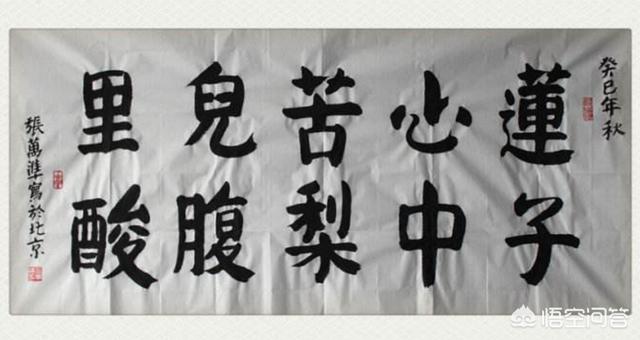 癸巳年秋
蓮子
心中
苦梨
兒腹
里酸
張萬準寫於北京
悟空问答